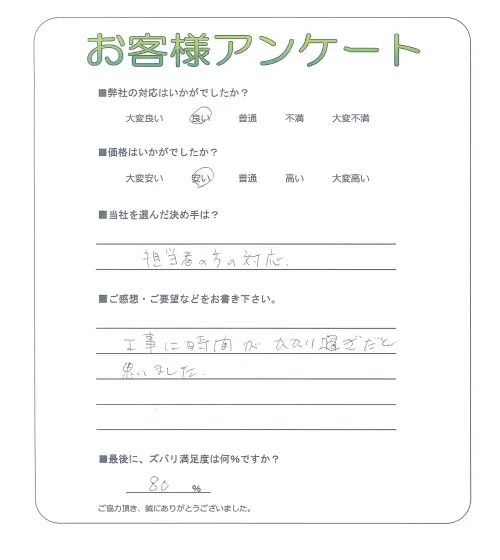 お客様アンケート
■弊社の対応はいかがでしたか？
大変良い 良い 普通 不満 大変不満
■価格はいかがでしたか？
大変安い 安い 普通 高い 大変高い
■当社を選んだ決め手は？
担当者の方の対応.
■ご感想・ご要望などをお書き下さい。
工事に時間が かかり過ぎだと
思いました.
■最後に、ズバリ満足度は何％ですか？
80 ％
ご協力頂き、誠にありがとうございました。